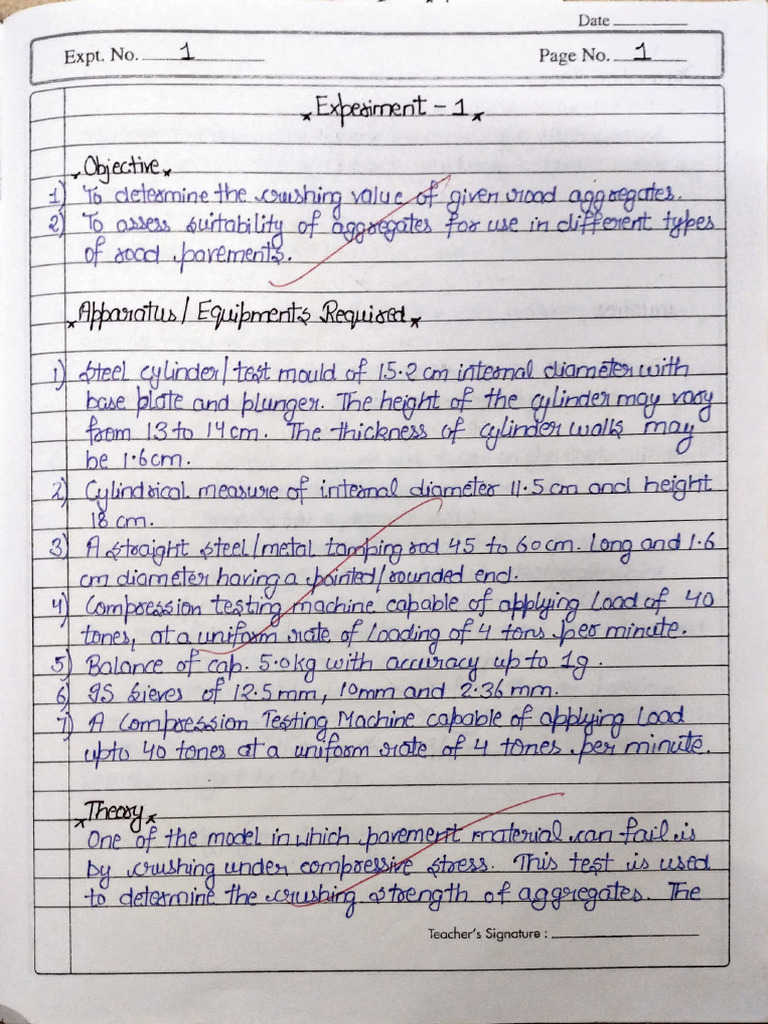 Date
Expt. No. 1 Page No. 1
* Experiment - 1 *
* Objective *
1) To determine the crushing value of given road aggregates.
2) To assess suitability of aggregates for use in different types
of road pavements.
* Apparatus / Equipments Required *
1) Steel cylinder / test mould of 15.2 cm internal diameter with
base plate and plunger. The height of the cylinder may vary
from 13 to 14 cm. The thickness of cylinder walls may
be 1.6cm.
2) Cylindrical measure of internal diameter 11.5 cm and height
18 cm.
3) A straight steel/metal tamping rod 45 to 60cm. long and 1.6
cm diameter having a pointed/rounded end.
4) Compression testing machine capable of applying load of 40
tones, at a uniform rate of loading of 4 tons per minute.
5) Balance of cap. 5.0kg with accuracy up to 1g.
6) IS Sieves of 12.5mm, 10mm and 2.36 mm.
7) A Compression Testing Machine capable of applying Load
upto 40 tones at a uniform rate of 4 tones per minute.
* Theory *
One of the model in which pavement material can fail is
by crushing under compressive stress. This test is used
to determine the crushing strength of aggregates. The
Teacher's Signature :